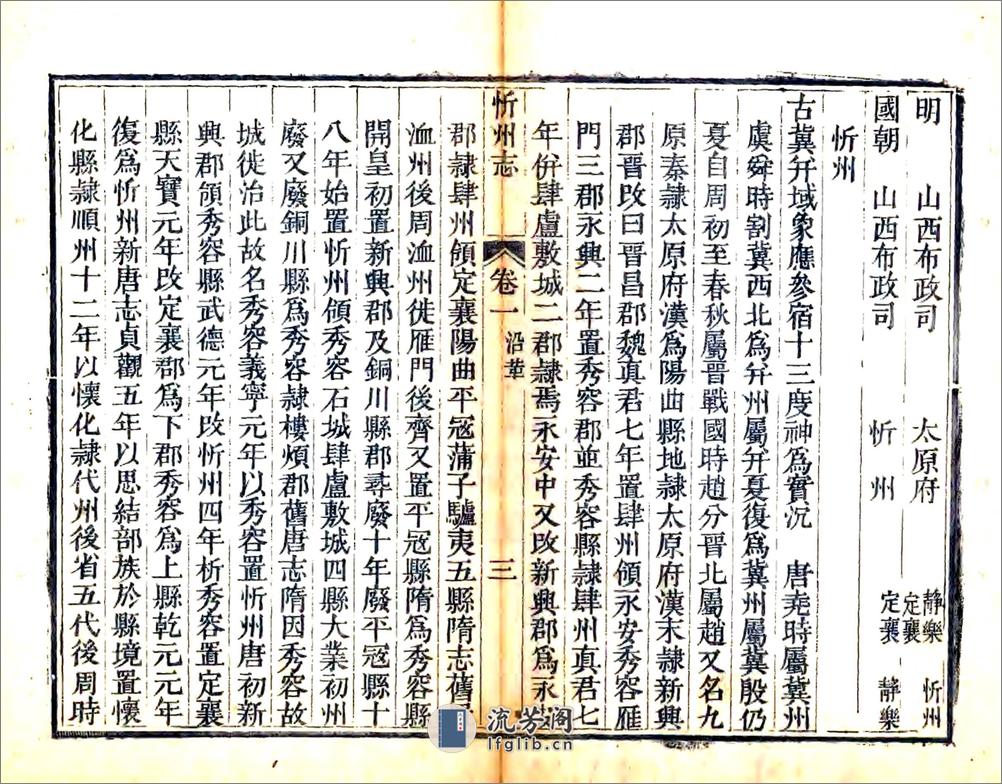 明　山西布政司　太原府　靜樂　忻州　定襄
國朝　山西布政司　忻州　定襄　靜樂
忻州
古冀幷域象應參宿十三度神爲實沉　唐堯時屬冀州
虞舜時割冀西北爲幷州屬幷夏復爲冀州屬冀殷仍
夏自周初至春秋屬晉戰國時趙分晉北屬趙又名九
原秦隸太原府漢爲陽曲縣地隸太原府漢末隸新興
郡晉改曰晉昌郡魏真君七年置肆州領永安秀容雁
門三郡永興二年置秀容郡並秀容縣隸肆州真君七
忻州志　卷一　沿革　三
年併肆盧敷城二郡隸焉永安中又改新興郡爲永安
郡隸肆州領定襄陽曲平冦蒲子驢夷五縣隋志舊置
洫州後周洫州徙雁門後齊又置平冦縣隋爲秀容縣
開皇初置新興郡及銅川縣郡尋廢十年廢平冦縣十
八年始置忻州領秀容石城肆盧敷城四縣大業初州
廢又廢銅川縣爲秀容隸樓煩郡舊唐志隋因秀容故
城徙治此故名秀容義寧元年以秀容置忻州唐初新
興郡領秀容縣武德元年改忻州四年析秀容置定襄
縣天寶元年改定襄郡爲下郡秀容爲上縣乾元元年
復爲忻州新唐志貞觀五年以思結部族於縣境置懷
化縣隸順州十二年以懷化隸代州後省五代後周時
流芳閣
lfglib.cn